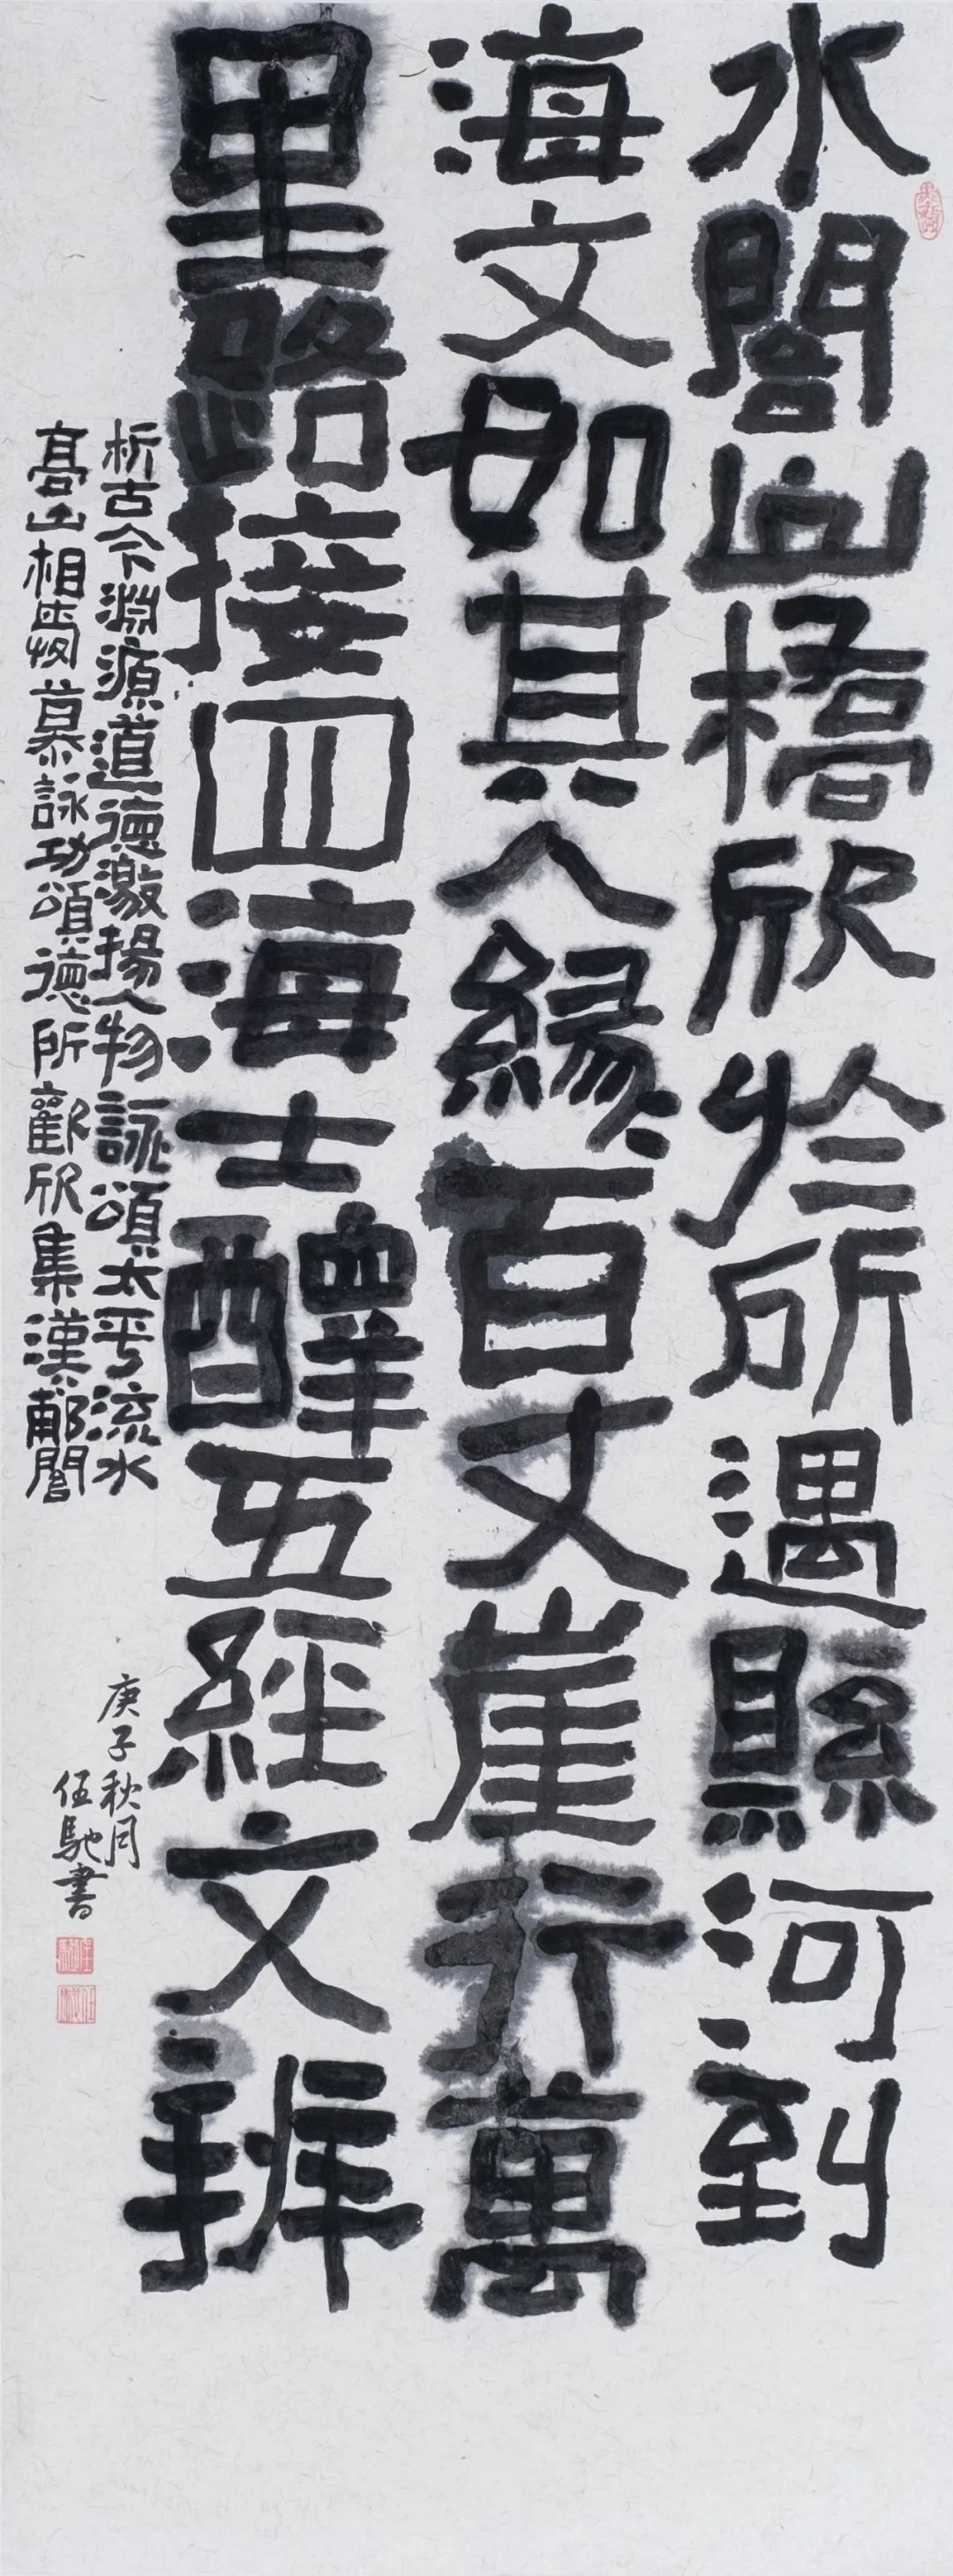 水閣山橋欣於所遇縣河到
海文如其人緣百丈崖行萬
里路接四海士醳五經文辨
析古今淵源道德激揚人物詠頌太平流水
高山相與慕詠功頌德所歡欣集漢郙閣
庚子秋月
伍馳書